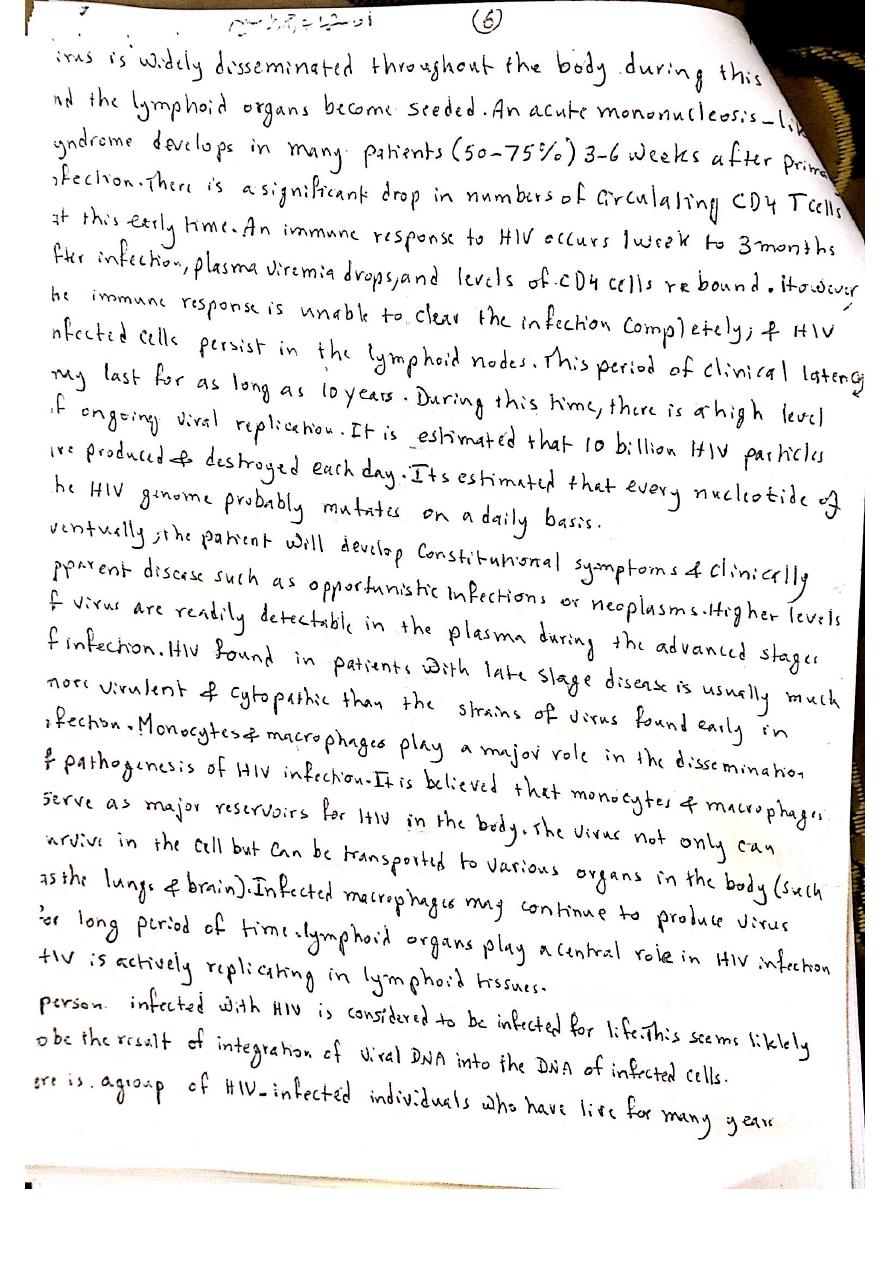 (6)
irus is widely disseminated throughout the body during this
nd the lymphoid organs become seeded. An acute mononucleosis-lik
yndrome develops in many patients (50-75%) 3-6 weeks after prima
fection. There is a significant drop in numbers of Circulating CD4 T cells
at this early time. An immune response to HIV occurs 1 week to 3 months
fter infection, plasma viremia drops, and levels of CD4 cells rebound. However,
he immune response is unable to clear the infection Completely; & HIV
nfected cells persist in the lymphoid nodes. This period of clinical latency
my last for as long as 10 years. During this time, there is a high level
f ongoing viral replication. It is estimated that 10 billion HIV particles
are produced & destroyed each day. Its estimated that every nucleotide of
he HIV genome probably mutates on a daily basis.
ventually, the patient will develop Constitutional symptoms & clinically
pparent disease such as opportunistic infections or neoplasms. Higher levels
f virus are readily detectable in the plasma during the advanced stages
f infection. HIV found in patients with late stage disease is usually much
more virulent & cytopathic than the strains of virus found early in
ifection. Monocytes & macrophages play a major role in the dissemination
& pathogenesis of HIV infection. It is believed that monocytes & macrophages
Serve as major reservoirs for HIV in the body. The virus not only can
urvive in the cell but can be transported to various organs in the body (such
as the lungs & brain). Infected macrophages may continue to produce virus
for long period of time. lymphoid organs play a central role in HIV infection
HIV is actively replicating in lymphoid tissues.
person infected with HIV is considered to be infected for life. This seems liklely
o be the result of integration of viral DNA into the DNA of infected cells.
ere is a group of HIV-infected individuals who have live for many years